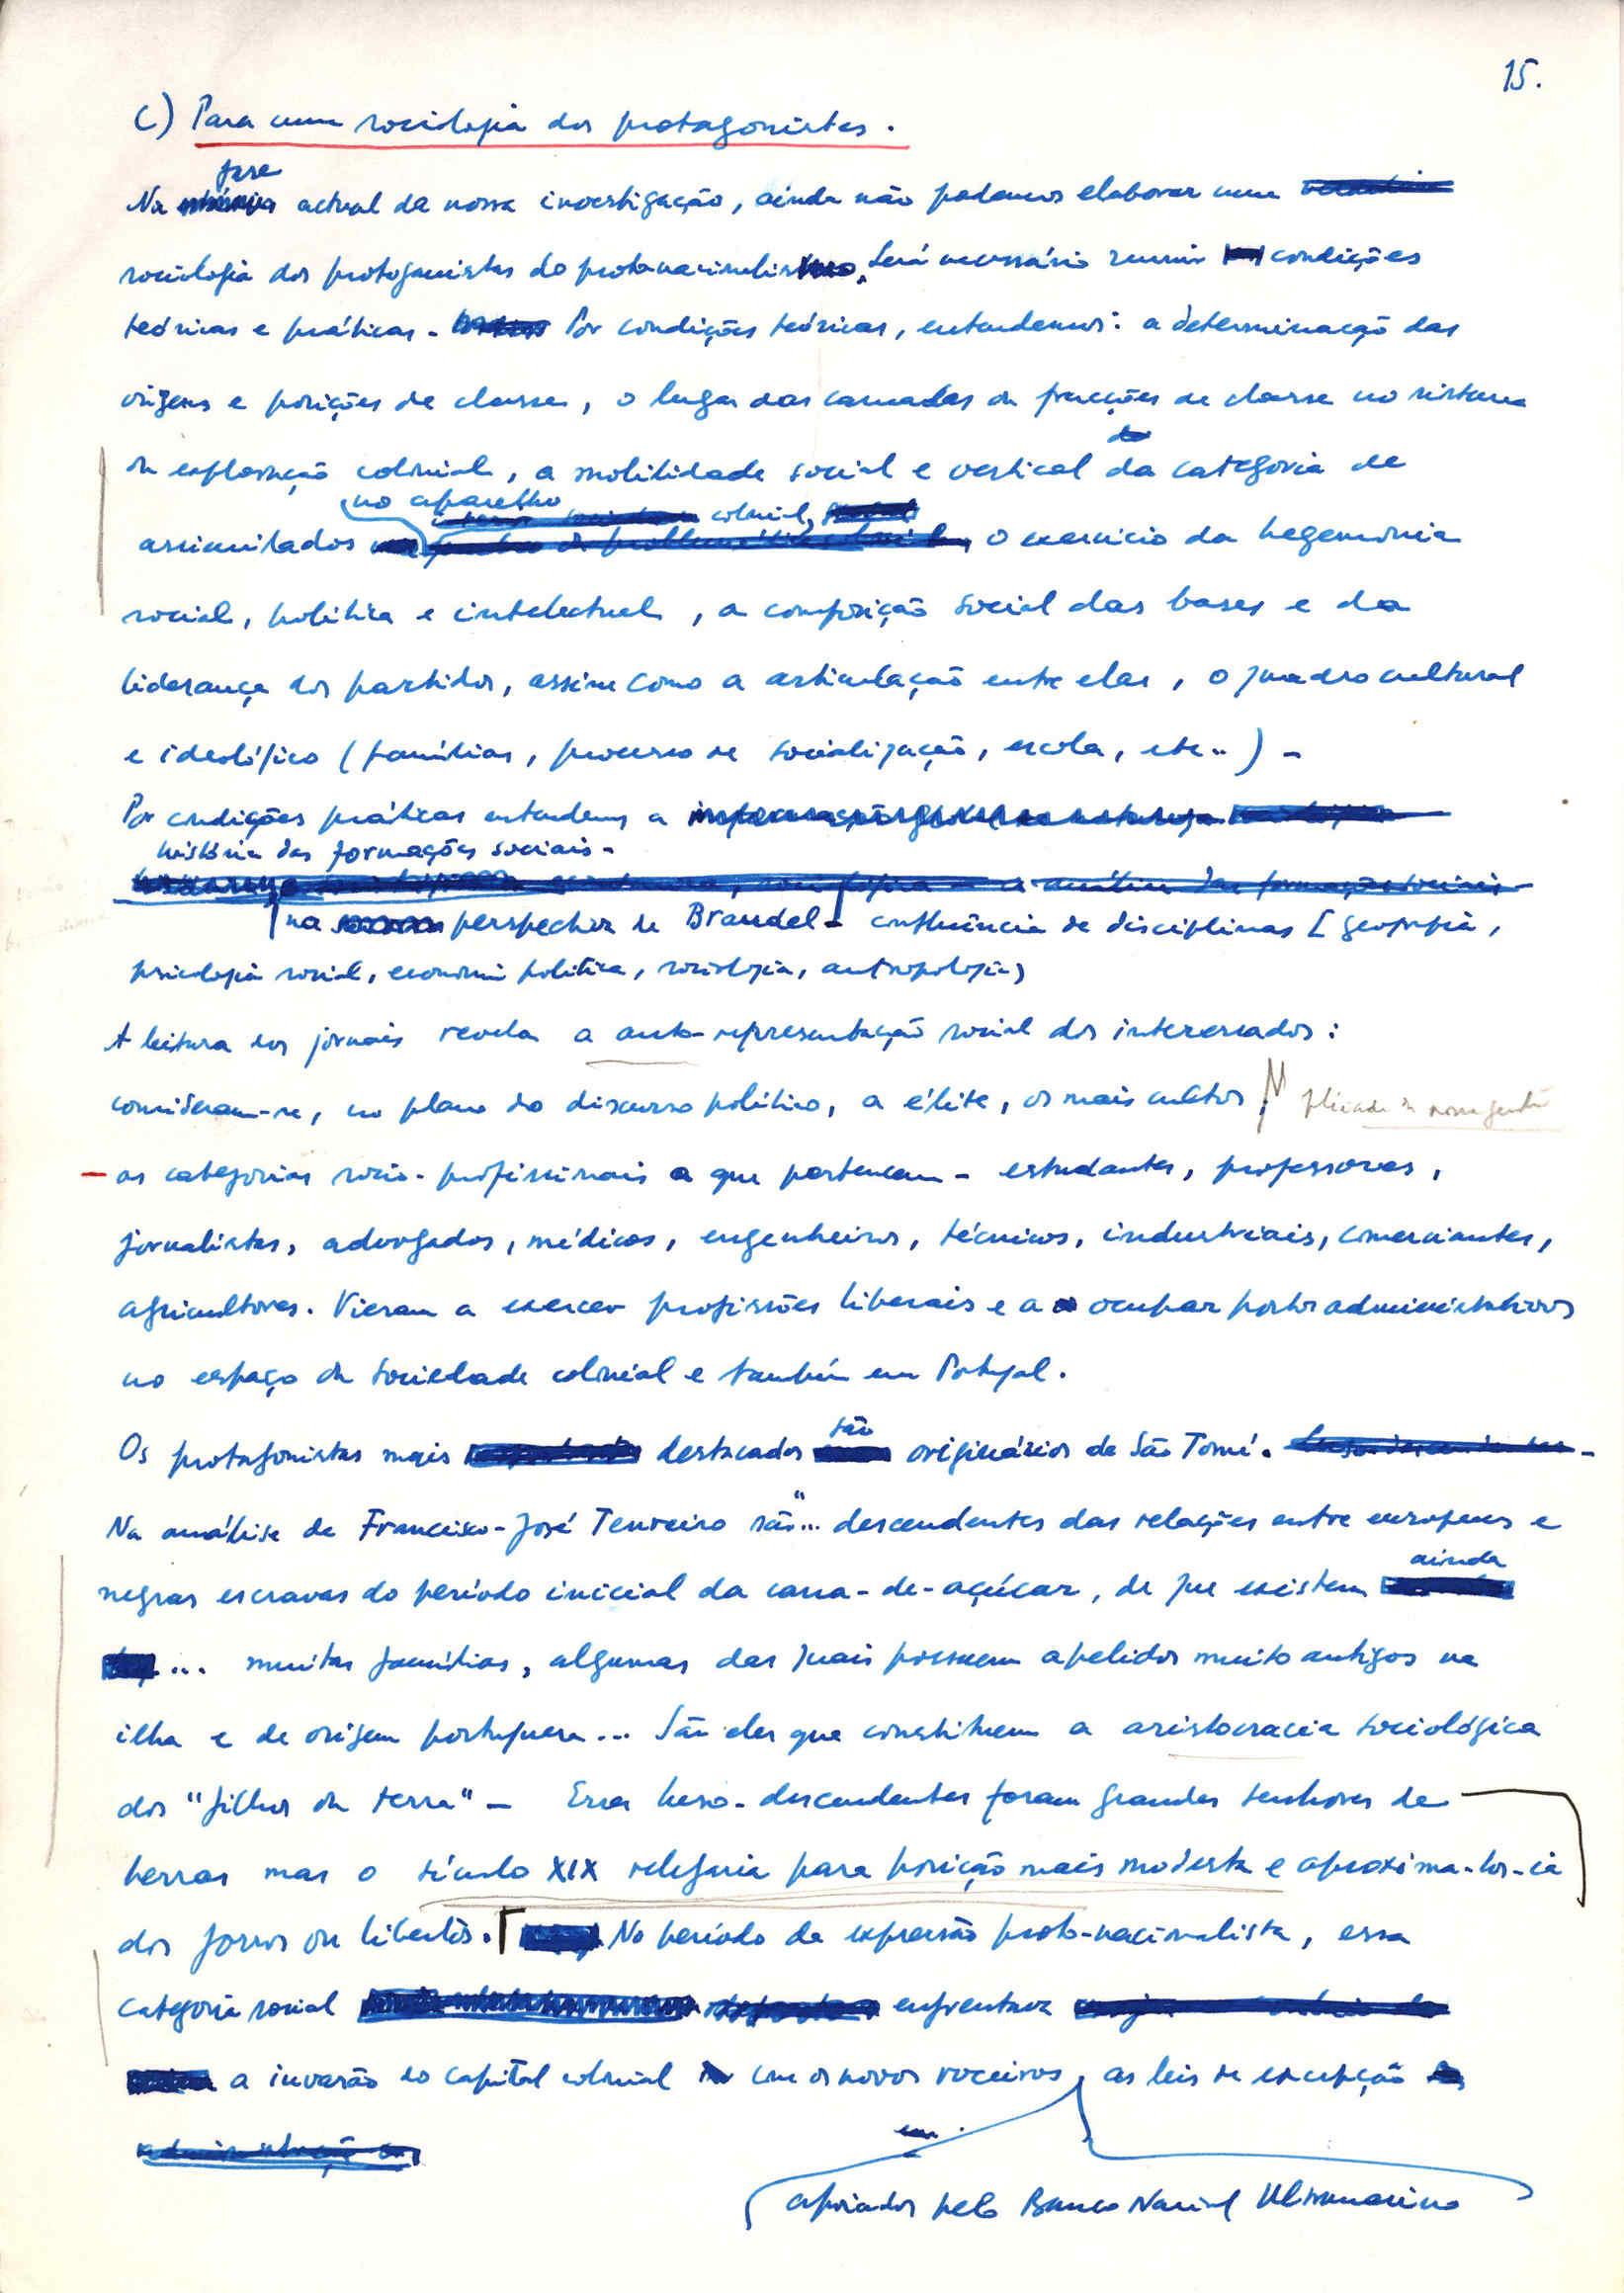 15.
C) Para uma sociologia dos protagonistas.
fase
Na actual da nossa investigação, ainda não podemos elaborar uma
sociologia dos protagonistas do proto-nacionalismo. Será necessário reunir condições
teóricas e práticas. Por condições teóricas, entendemos: a determinação das
origens e posições de classe, o lugar das camadas ou fracções de classe no sistema
de exploração colonial, a mobilidade social e vertical da categoria de
no aparelho colonial,
assimilados o exercício da hegemonia
social, política e intelectual, a composição social das bases e da
liderança dos partidos, assim como a articulação entre elas, o quadro cultural
e ideológico (famílias, processo de socialização, escola, etc..) -
Por condições práticas entendemos a
história das formações sociais -
na perspectiva de Braudel - confluência de disciplinas [geografia,
psicologia social, economia política, sociologia, antropologia)
A leitura dos jornais revela a auto-representação social dos interessados:
consideram-se, no plano do discurso político, a élite, os mais cultos
- as categorias socio-profissionais a que pertencem - estudantes, professores,
jornalistas, advogados, médicos, engenheiros, técnicos, industriais, comerciantes,
agricultores. Vieram a exercer profissões liberais e a ocupar postos administrativos
no espaço da sociedade colonial e também em Portugal.
Os protagonistas mais destacados são originários de São Tomé.
Na análise de Francisco-José Tenreiro são "... descendentes das relações entre europeus e
negras escravas do período inicial da cana-de-açúcar, de que existem ainda
... muitas famílias, algumas das quais possuem apelidos muito antigos na
ilha e de origem portuguesa... São eles que constituem a aristocracia sociológica
dos "filhos da terra" - Esses luso-descendentes foram grandes senhores de
terras mas o século XIX relegaria para posição mais modesta e aproxima-los-ia
dos forros ou libertos. No período de expressão proto-nacionalista, essa
categoria social enfrentava
a invasão do capital colonial com os novos roceiros, as leis de excepção
apoiados pelo Banco Nacional Ultramarino